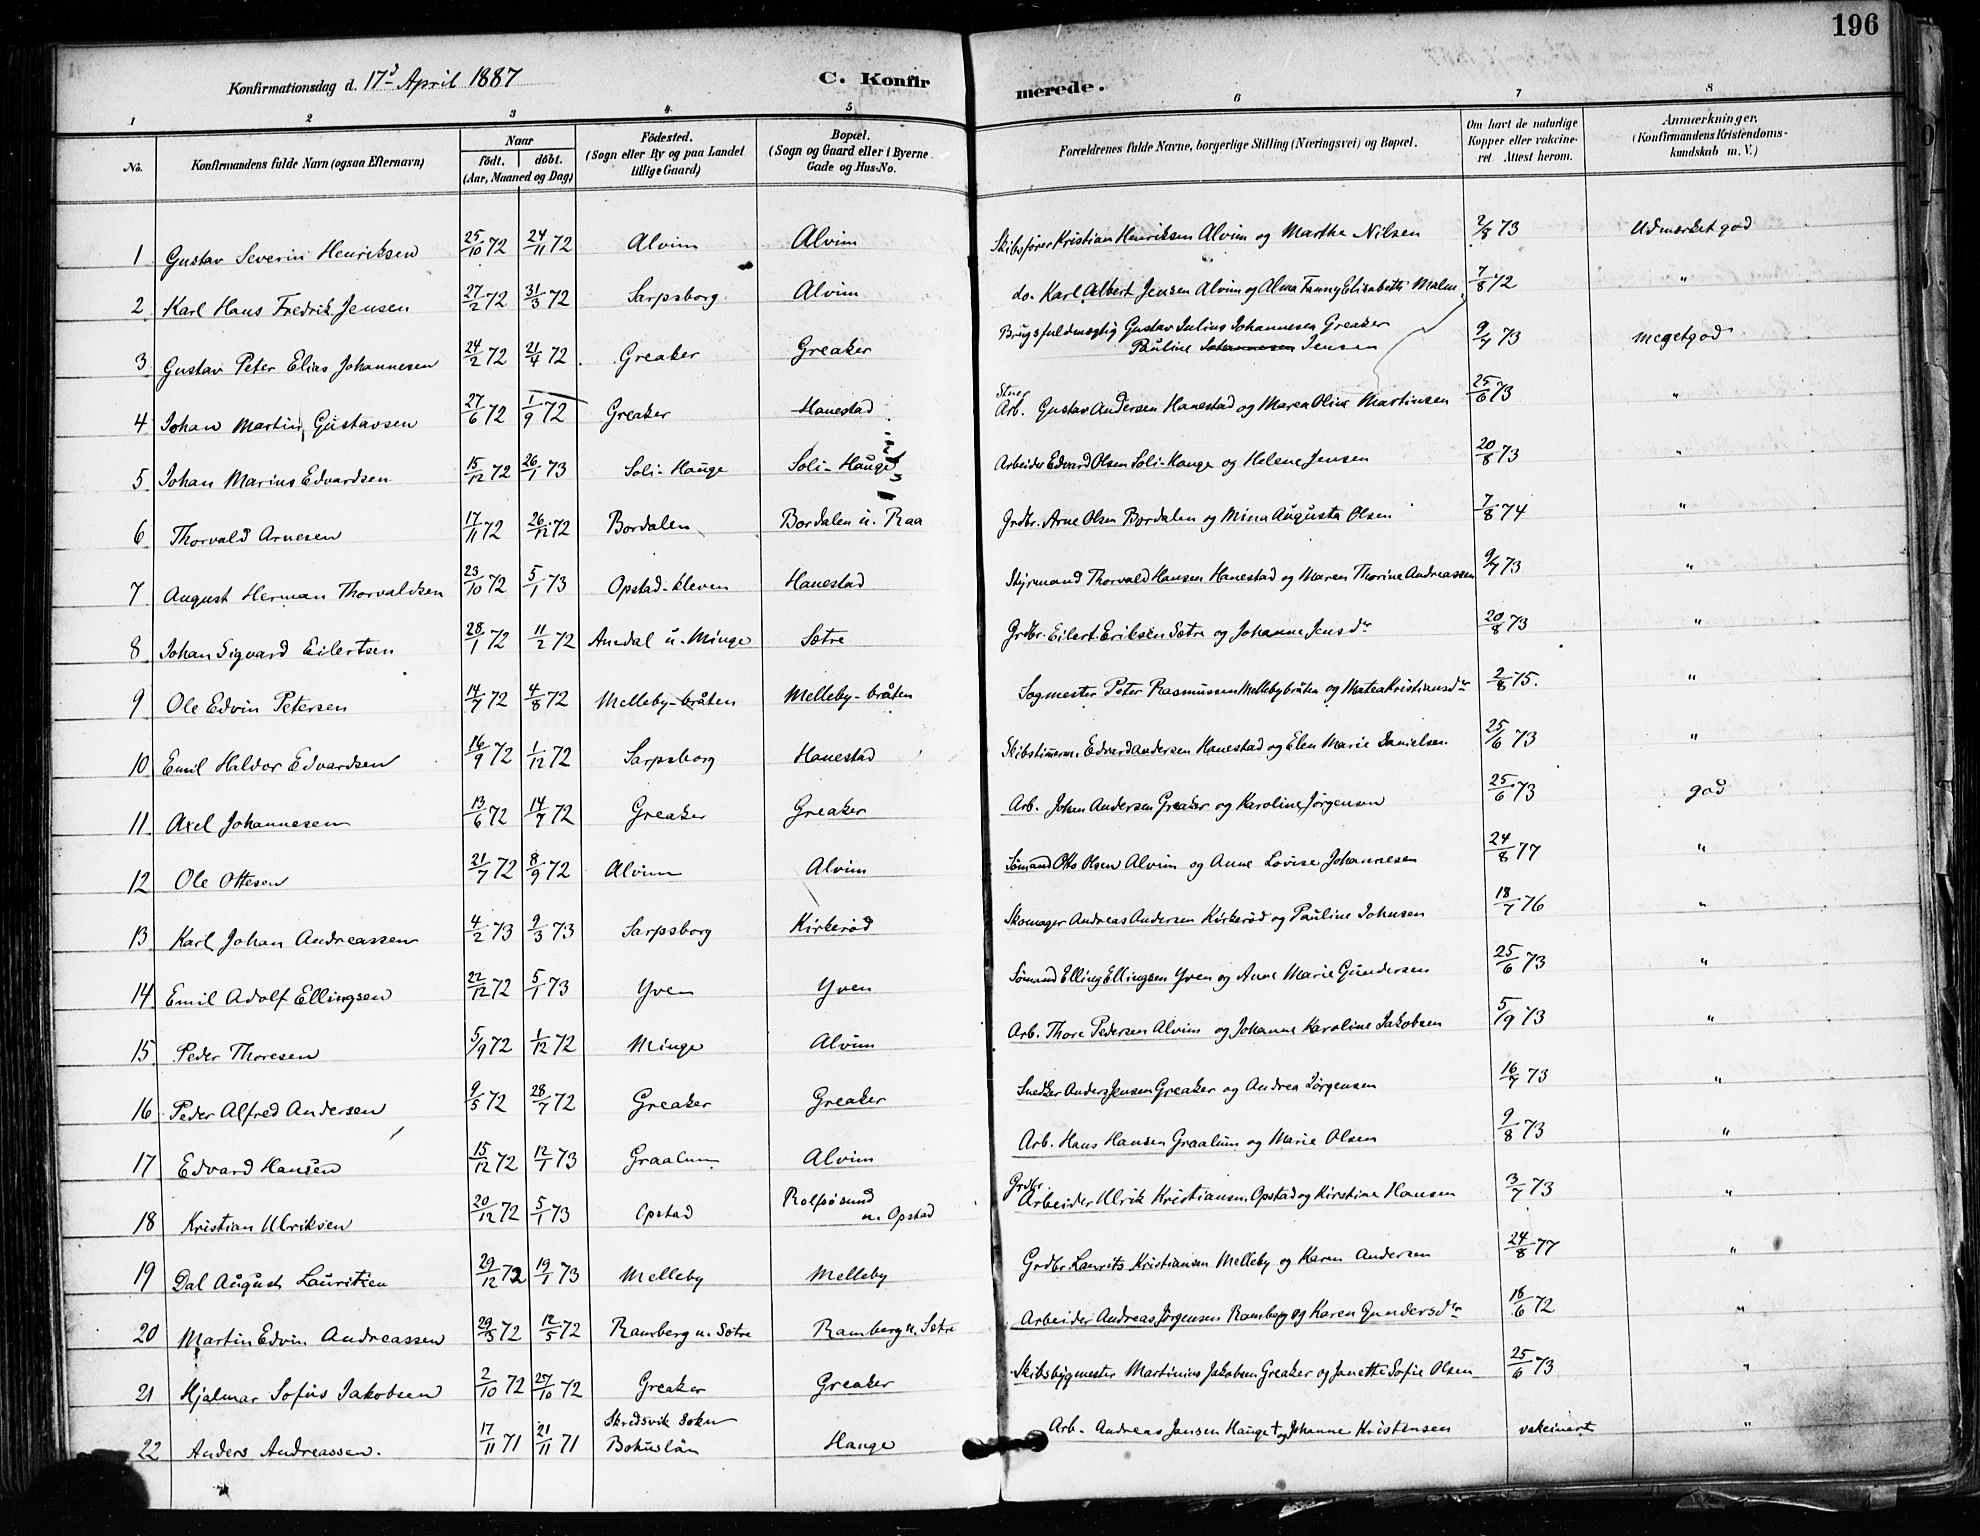 196
Konfirmationsdag d. 17d April 1887 C. Konfirmerede.
1 2 3 4 5 6 7 8
No. Konfirmandens fulde Navn (ogsaa Efternavn) Naar födt. döbt. (Aar, Maaned og Dag) Födested. (Sogn eller By og paa Landet tillige Gaard) Bopæl. (Sogn og Gaard eller i Byerne Gade og Hus-No. Forældrenes fulde Navne, borgerlige Stilling (Næringsvei) og Bopæl. Om havt de naturlige Kopper eller vakcineret. Attest herom. Anmærkninger, (Konfirmandens Kristendomskundskab m. V.)
1 Gustav Severin Henriksen 25/10 72 24/11 72 Alvim Alvim Skibsfører Kristian Henriksen Alvim og Marthe Nilsen 2/8 73 Udmærket god
2 Karl Hans Fredrik Jensen 27/2 72 31/3 72 Sarpsborg Alvim do. Karl Albert Jensen Alvim og Alma Fanny Elisabeth Malm 7/8 72 "
3 Gustav Peter Elias Johannesen 24/2 72 21/4 72 Greaker Greaker Brugsfuldmægtig Gustav Julius Johannesen Greaker
Pauline Johannesen Jensen 9/7 73 meget god
4 Johan Martin Gustavsen 27/6 72 1/9 72 Greaker Hanestad Arb. Gustav Andersen Hanestad og Maren Oline Martinsen 25/6 73 "
5 Johan Marius Edvardsen 15/12 72 26/1 73 Soli-Hauge Soli-Hauge Arbeider Edvard Olsen Soli-Hauge og Helene Jensen 20/8 73 "
6 Thorvald Arnesen 17/11 72 26/12 72 Bordalen Bordalen u. Raa Grdbr. Arne Olsen Bordalen og Mina Augusta Olsen 7/8 74 "
7 August Herman Thorvaldsen 23/10 72 5/1 73 Opstad-kleven Hanestad Styrmand Thorvald Hansen Hanestad og Maren Thorine Andreassen 9/7 73 "
8 Johan Sigvard Eilertsen 28/1 72 11/2 72 Anedal u. Minge Sætre Grdbr. Eilert Eriksen Sætre og Johanne Jensdr 20/8 73 "
9 Ole Edvin Petersen 14/7 72 4/8 72 Melleby-bråten Melleby-bråten Sogmester Peter Rasmussen Mellebybråten og Matea Kristiansdr 2/8 75. "
10 Emil Haldor Edvardsen 16/9 72 1/12 72 Sarpsborg Hanestad Skibstimerm. Edvard Andersen Hanestad og Elen Marie Danielsen 25/6 73 "
11 Axel Johannesen 13/6 72 14/7 72 Greaker Greaker Arb. Johan Andersen Greaker og Karoline Jørgensen 25/6 73 god
12 Ole Ottesen 21/7 72 8/9 72 Alvim Alvim Sømand Otto Olsen Alvim og Anne Lovise Johannesen 24/8 77 "
13 Karl Johan Andreassen 4/2 73 9/3 73 Sarpsborg Kirkerød Skomager Andreas Andersen Kirkerød og Pauline Johnsen 18/7 76 "
14 Emil Adolf Ellingsen 22/12 72 5/1 73 Yven Yven Sømand Elling Ellingsen Yven og Anne Marie Gundersen 25/6 73 "
15 Peder Thoresen 5/9 72 1/12 72 Minge Alvim Arb. Thore Pedersen Alvim og Johanne Karoline Jakobsen 5/9 73 "
16 Peder Alfred Andersen 9/5 72 28/7 72 Greaker Greaker Snedker Anders Jensen Greaker og Andrea Jørgensen 16/7 73 "
17 Edvard Hansen 15/12 72 12/1 73 Graalum Alvim Arb. Hans Hansen Graalum og Marie Olsen 9/8 73 "
18 Kristian Ulriksen 20/12 72 5/1 73 Opstad Rolfsøsund u. Opstad Grdbr. Arbeider Ulrik Kristiansen Opstad og Kirstine Hansen 3/7 73 "
19 Dal August Lauritzen 29/12 72 19/1 73 Melleby Melleby Grdbr Laurits Kristiansen Melleby og Karen Andersen 24/8 77 "
20 Martin Edvin Andreassen 29/3 72 12/5 72 Ramberg u. Sætre Ramberg u. Sætre Arbeider Andreas Jørgensen Ramberg og Karen Gundersdr 18/6 72 "
21 Hjalmar Sofus Jakobsen 2/10 72 27/10 72 Greaker Greaker Skibsbygmester Martinius Jakobsen Greaker og Janette Sofie Olsen 25/6 73 "
22 Anders Andreassen. 17/11 71 21/11 71 Skredsvik Sokn Bohuslän Hauge Arb. Andreas Jansen Hauge † og Johanne Kristensen vakcinert "